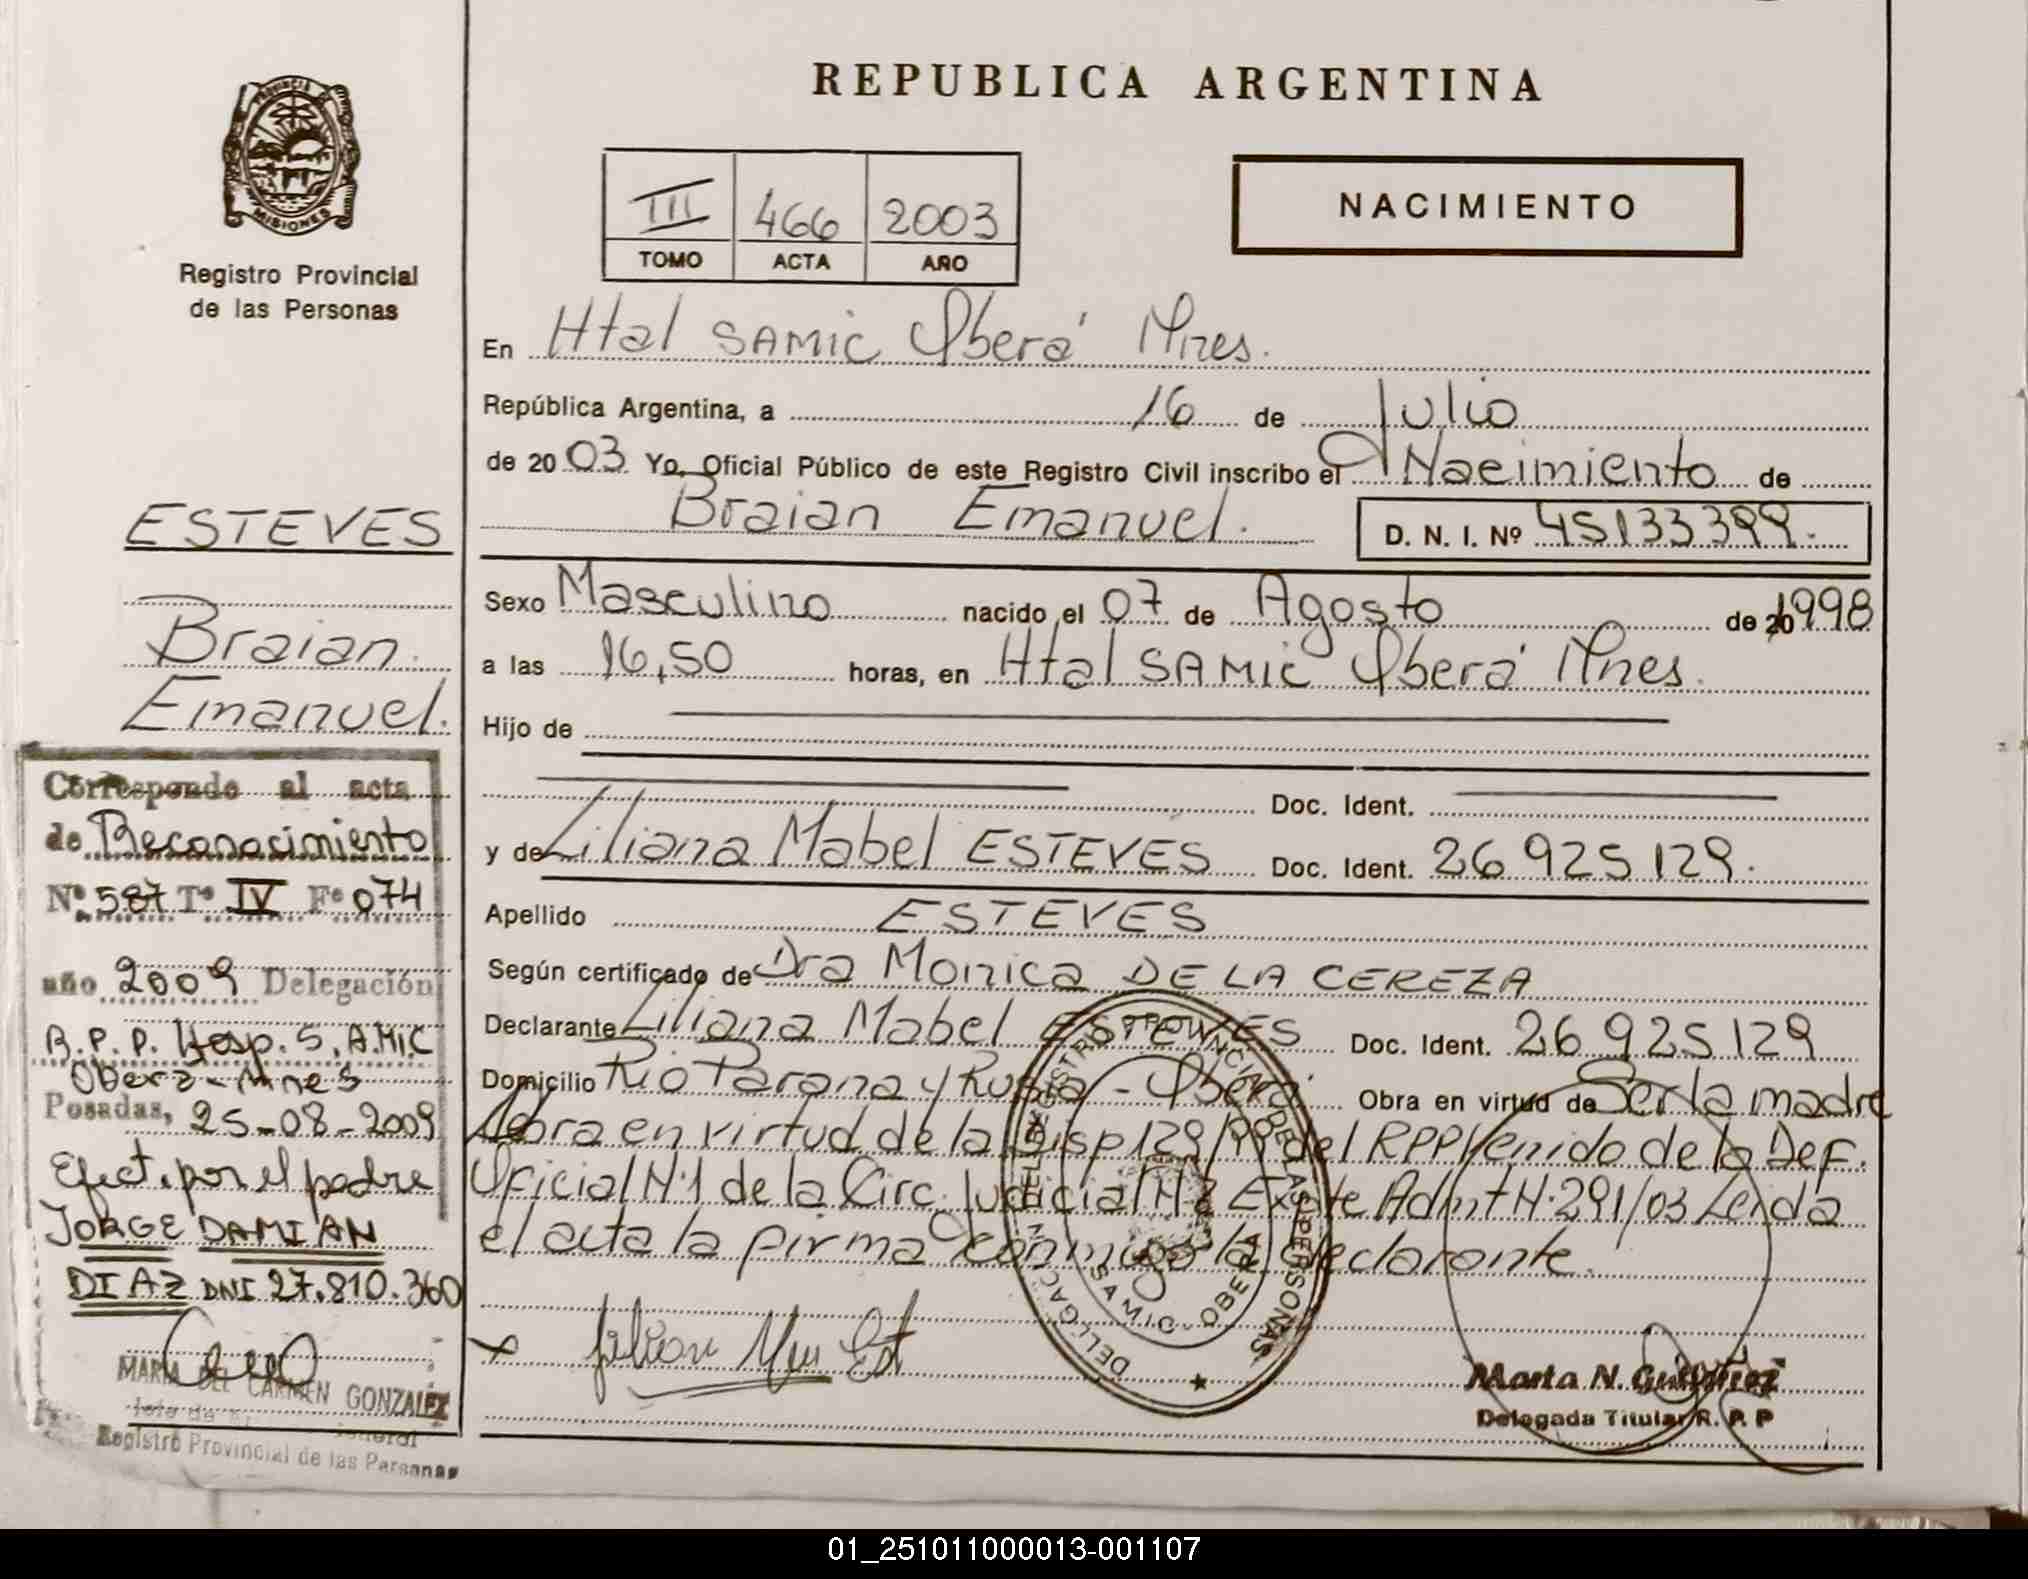 REPUBLICA ARGENTINA
PROVINCIA DE
MISIONES
Registro Provincial
de las Personas
III 466 2003
TOMO ACTA AÑO
NACIMIENTO
En Htal SAMIC Oberá Mnes.
República Argentina, a 16 de Julio
de 2003 Yo, Oficial Público de este Registro Civil inscribo el Nacimiento de
Braian Emanuel. D. N. I. Nº 45133399.
ESTEVES
Braian
Emanuel.
Sexo Masculino nacido el 07 de Agosto de 20 1998
a las 16,50 horas, en Htal SAMIC Oberá Mnes.
Hijo de
Doc. Ident.
y de Liliana Mabel ESTEVES Doc. Ident. 26 925 129.
Apellido ESTEVES
Según certificado de Dra Monica DE LA CEREZA
Declarante Liliana Mabel ESTEVES Doc. Ident. 26 925 129
Domicilio Rio Parana y Rusia - Oberá Obra en virtud de Ser la madre
Obra en virtud de la Disp 129/99 del RPP Venido de la Def.
Oficial N.1 de la Circ. Judicial N 2 Expte Admt N.291/03 Leida
el acta la firma conmigo la declarante.
Corresponde al acta
de Reconocimiento
Nº 587 Tº IV Fº 074
año 2009 Delegación
R.P.P. Hosp. S.A.MIC
Oberá - Mnes
Posadas, 25-08-2009
Efect. por el padre
JORGE DAMIAN
DIAZ DNI 27.810.360
MARIA DEL CARMEN GONZALEZ
Registro Provincial de las Personas
REGISTRO PROVINCIAL DE LAS PERSONAS
SAMIC - OBERA
Marta N. Gutiérrez
Delegada Titular R. P. P
01_251011000013-001107